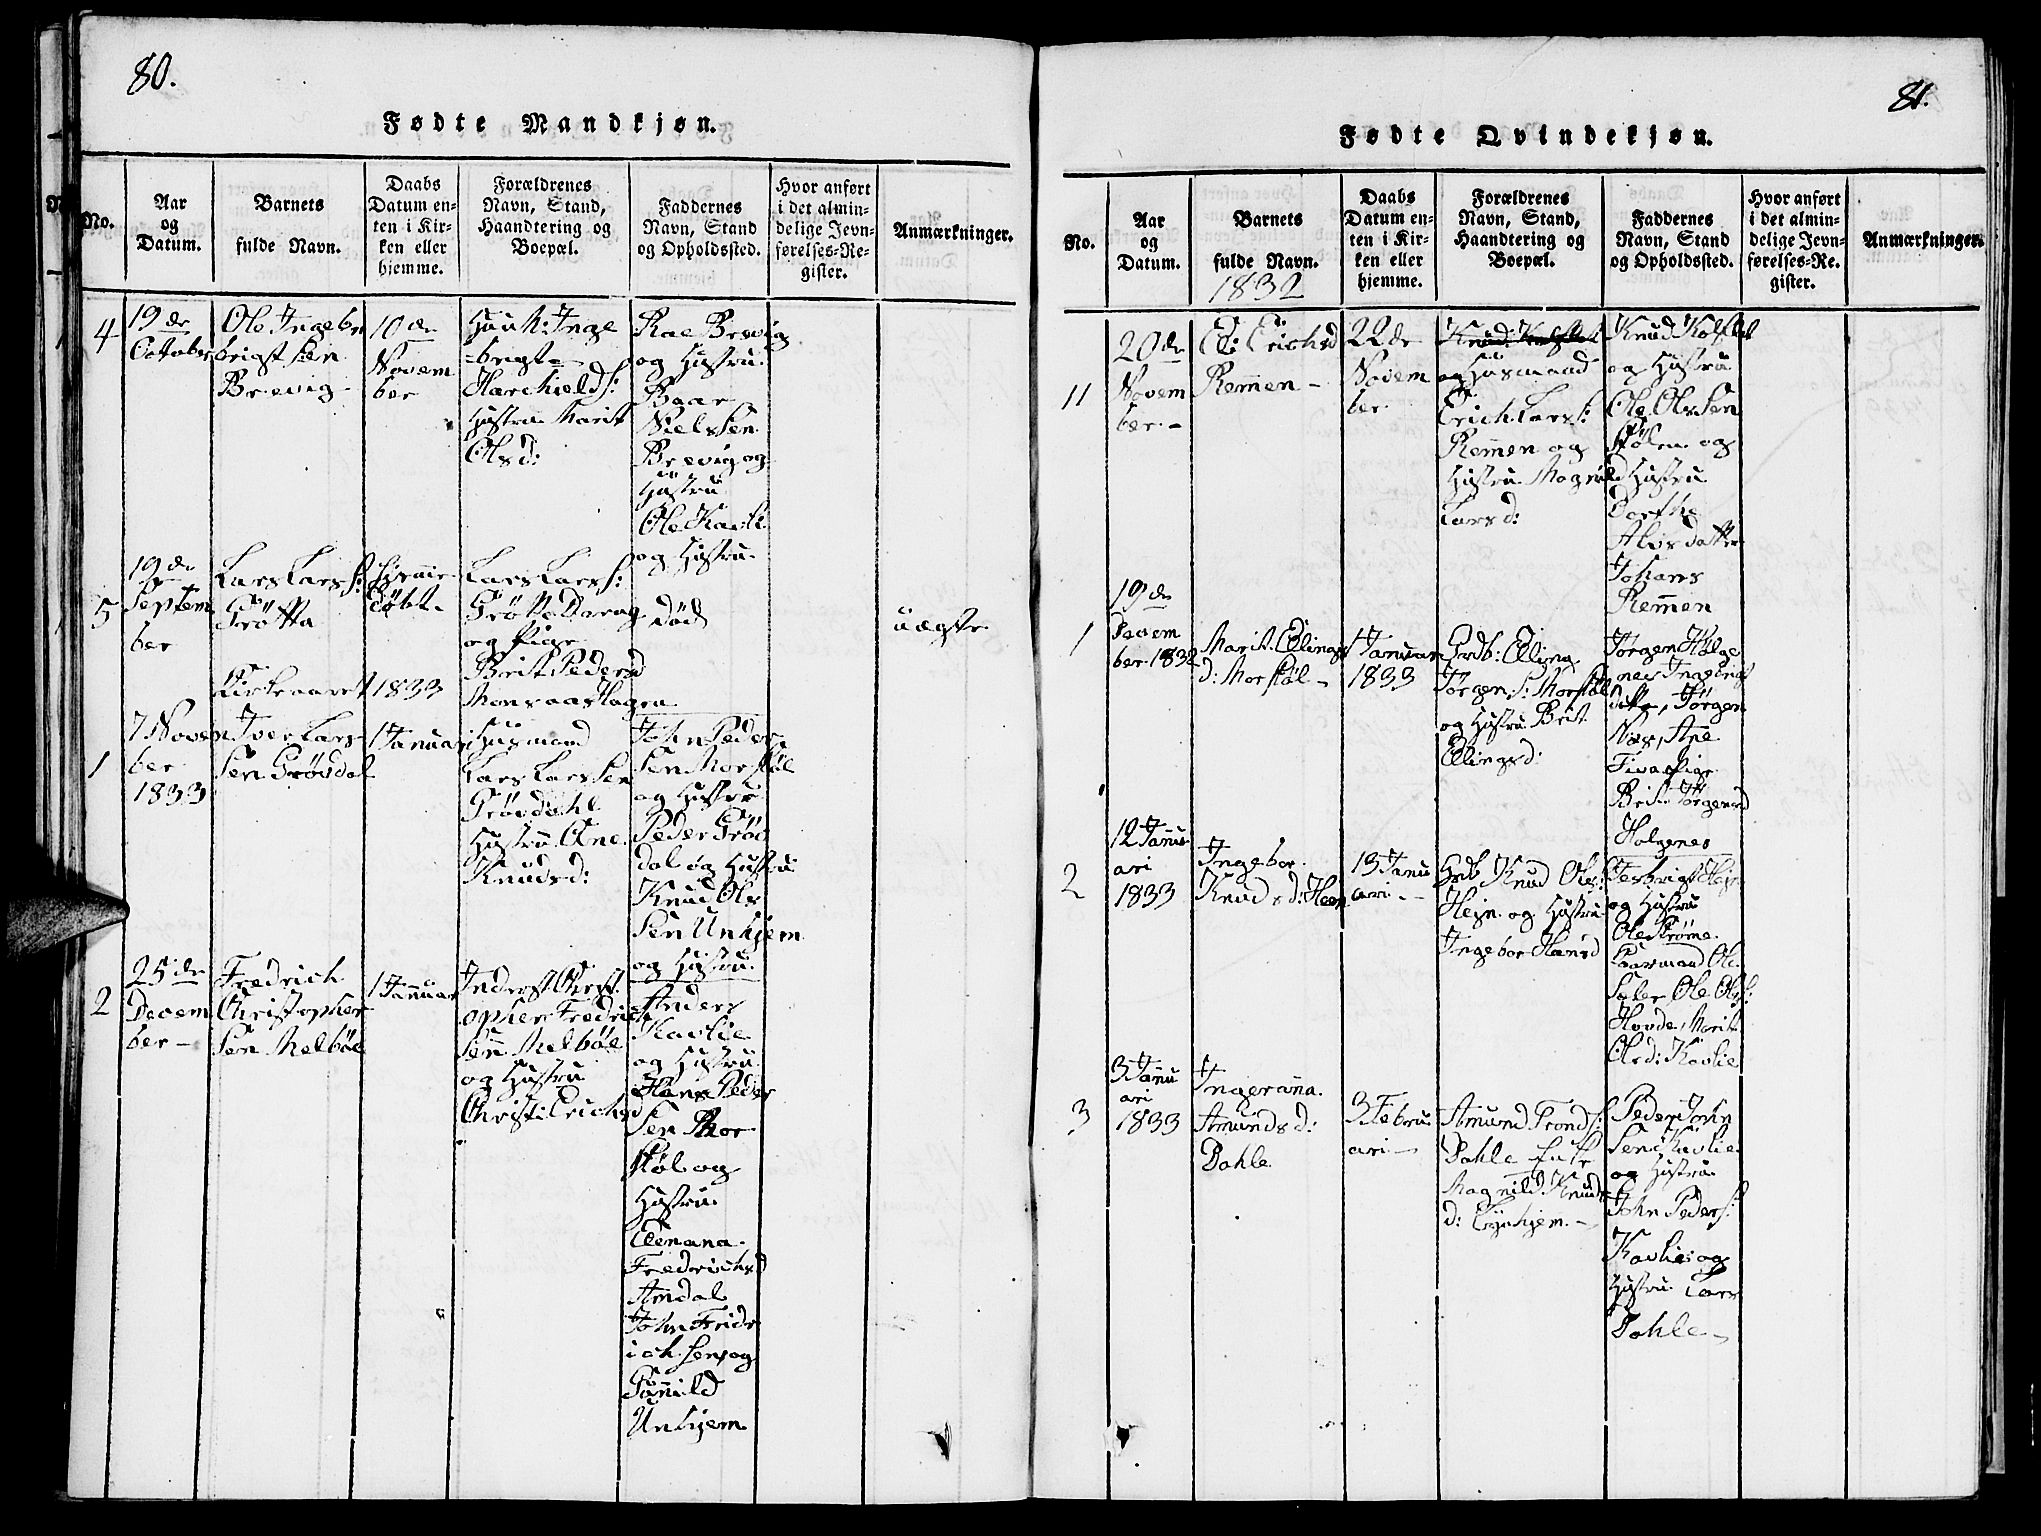 80.
Fødte Mandkjøn.
No.
Aar
og
Datum.
Barnets
fulde Navn.
Daabs
Datum en-
ten i Kir-
ken eller
hjemme.
Forældrenes
Navn, Stand,
Haandtering og
Boepæl.
Faddernes
Navn, Stand
og Opholdssted.
Hvor anført
i det almin-
delige Jevn-
førelses-Re-
gister.
Anmærkninger.
4
19de
October
Ole Ingebr
brigtsen
Brevig
10de
Novem
ber
Inge
=brigt
Hustrue Marit
Olsd:
Brevig
og Hustru
Baar
Nielssen
Brevig og
Hustru
Ole Kavli
og Hustru
5
19de
Septem
ber
Lars Larss:
Grötta
döbt
Lars Larss:
Grötta
og Pige
Brit Pedersd
Monsaashagen
död
uægte
Kirkeaaret 1833
1
7 Novem
ber
1833
Iver Lars
sen Grövdal
1 Januar
Husmand
Lars Larssen
Grövdahl
Hustru Ane
Knudsd:
John Peder
sen Morstöl
og Hustru
Peder Gröv
dal og Hustru
Knud Ols
sen Unhjem
og Hustru
2
25de
Decem
ber
Fredrich
Christopher
sen Melböe
1 Januar
Inderst Christ
opher Fredrich
sen Melböe
og Hustru
Christi Erichsd
Anders
Kavlie
og Hustru
Hans Peder
sen Mor
stöl og
Hustru
Elenana
Fredrichsd
Amdal
John Fridr
ich sen og
Gunild
Unhjem
81.
Fødte Qvindekjøn.
No.
Aar
og
Datum.
Barnets
fulde Navn.
1832
Daabs
Datum en-
ten i Kir-
ken eller
hjemme.
Forældrenes
Navn, Stand,
Haandtering og
Boepæl.
Faddernes
Navn, Stand
og Opholdssted.
Hvor anført
i det almin-
delige Jevn-
førelses-Re-
gister.
Anmærkninger.
11
20de
Novem
ber
Eli Erichsd
Remmen
22de
Novem
ber
Knud Kolflot
og Husmand
Erich Larss:
Remmen og
Hustru Magnild
Larsd:
Knud Kolflot
og Hustru
Ole Olssen
Stölen og
Hustru
Dorthe
Johans
Remmen
1
19de
Decem
ber 1832
Marit Ellings
d: Morstöl
1 Januari
1833
Grdb: Elling
Jörgens: Morstöl
og Hustru Brit
Ellingsd:
Jörgen Holge
nes Ingebrigt
ditto, Jörgen
Næs, Ane
Fiva Pige
Brit Jörgensd
Holgenes
2
12 Janu
ari
1833
Ingebor
Knudsd: Hejn
13 Janu
ari
Grdb Knud Ols:
Hejn og Hustru
Ingebor Hansd
Hejn
og Hustru
Ole Ströme
Ole
Sæter Ole Ols:
Hovde, Marit
Olsd: Kavlie
3
3 Janu
ari
1833
Ingeranna
Amundsd:
Dahle
3 Febru
ari
Amund Tronds:
Dahle Enke
Magnild Knuds
d: Lynhjem
Peder John
sen Kavlie
og Hustru
John Peders:
Kavlie og
Hustru Lars
Dahle